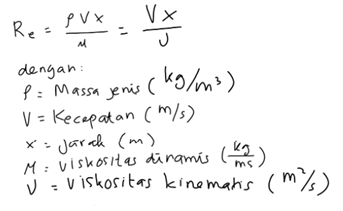 Re = ρVx/μ = Vx/υ
dengan:
ρ = Massa jenis (kg/m³)
V = Kecepatan (m/s)
x = jarak (m)
μ = Viskositas dinamis (kg/ms)
υ = Viskositas kinematis (m²/s)